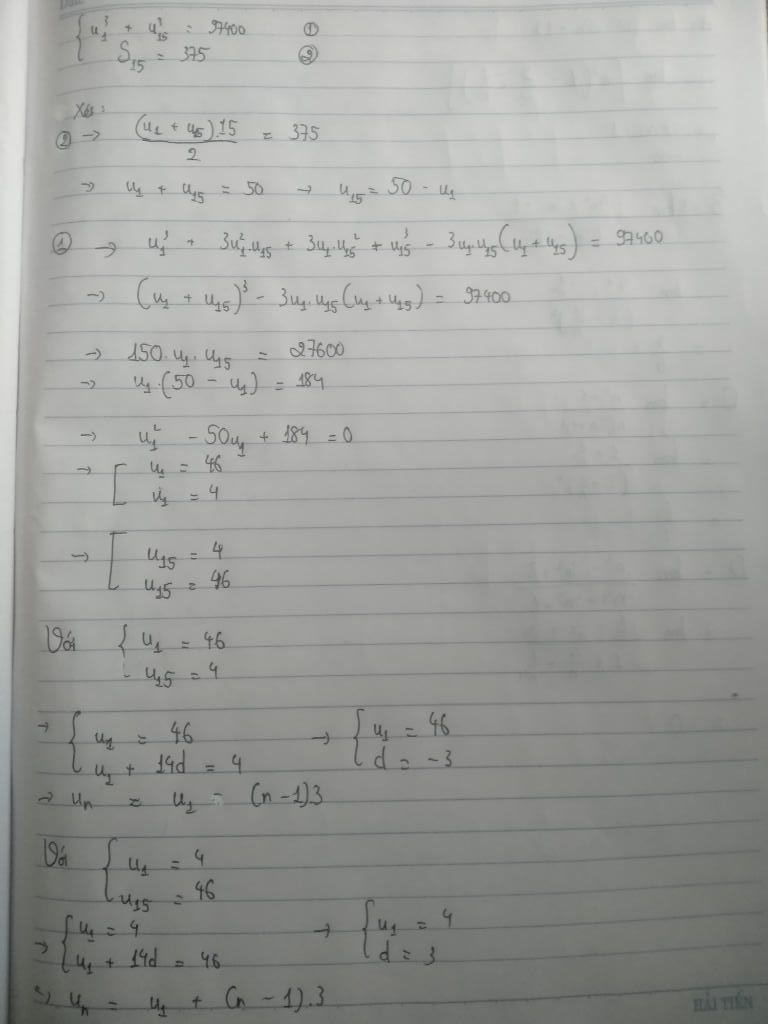 { u₁³ + u₁₅³ = 97400 ①
S₁₅ = 375 ②
Xét:
② → (u₁ + u₁₅).15 / 2 = 375
→ u₁ + u₁₅ = 50 → u₁₅ = 50 - u₁
① → u₁³ + 3u₁².u₁₅ + 3u₁.u₁₅² + u₁₅³ - 3u₁.u₁₅(u₁ + u₁₅) = 97400
→ (u₁ + u₁₅)³ - 3u₁.u₁₅(u₁ + u₁₅) = 97400
→ 150.u₁.u₁₅ = 27600
→ u₁.(50 - u₁) = 184
→ u₁² - 50u₁ + 184 = 0
→ [ u₁ = 46
u₁ = 4
→ [ u₁₅ = 4
u₁₅ = 46
Với { u₁ = 46
u₁₅ = 4
→ { u₁ = 46 → { u₁ = 46
u₁ + 14d = 4 d = -3
→ uₙ = u₁ - (n-1)3
Với { u₁ = 4
u₁₅ = 46
→ { u₁ = 4 → { u₁ = 4
u₁ + 14d = 46 d = 3
→ uₙ = u₁ + (n - 1).3
HẢI TIẾN